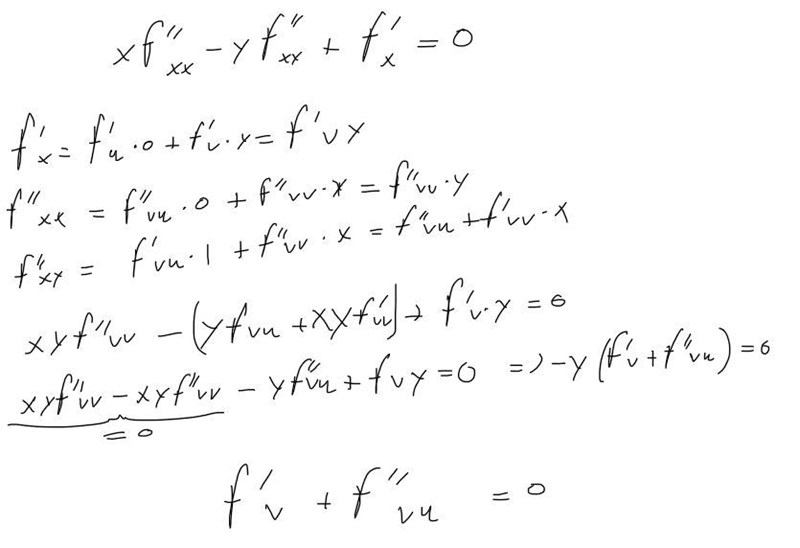 xf''xx - yf''xx + f'x = 0
f'x = f'u · 0 + f'v · y = f'v y
f''xx = f''vu · 0 + f''vv · x = f''vv · y
f''xy = f'vu · 1 + f''vv · x = f''vu + f'vv · x
xyf''vv - (yfvu + xyf'u) + f'v · y = 0
xyf''vv - xyf''vv - yf''vu + fvy = 0 => -y (f'v + f''vu) = 0
= 0
f'v + f''vu = 0